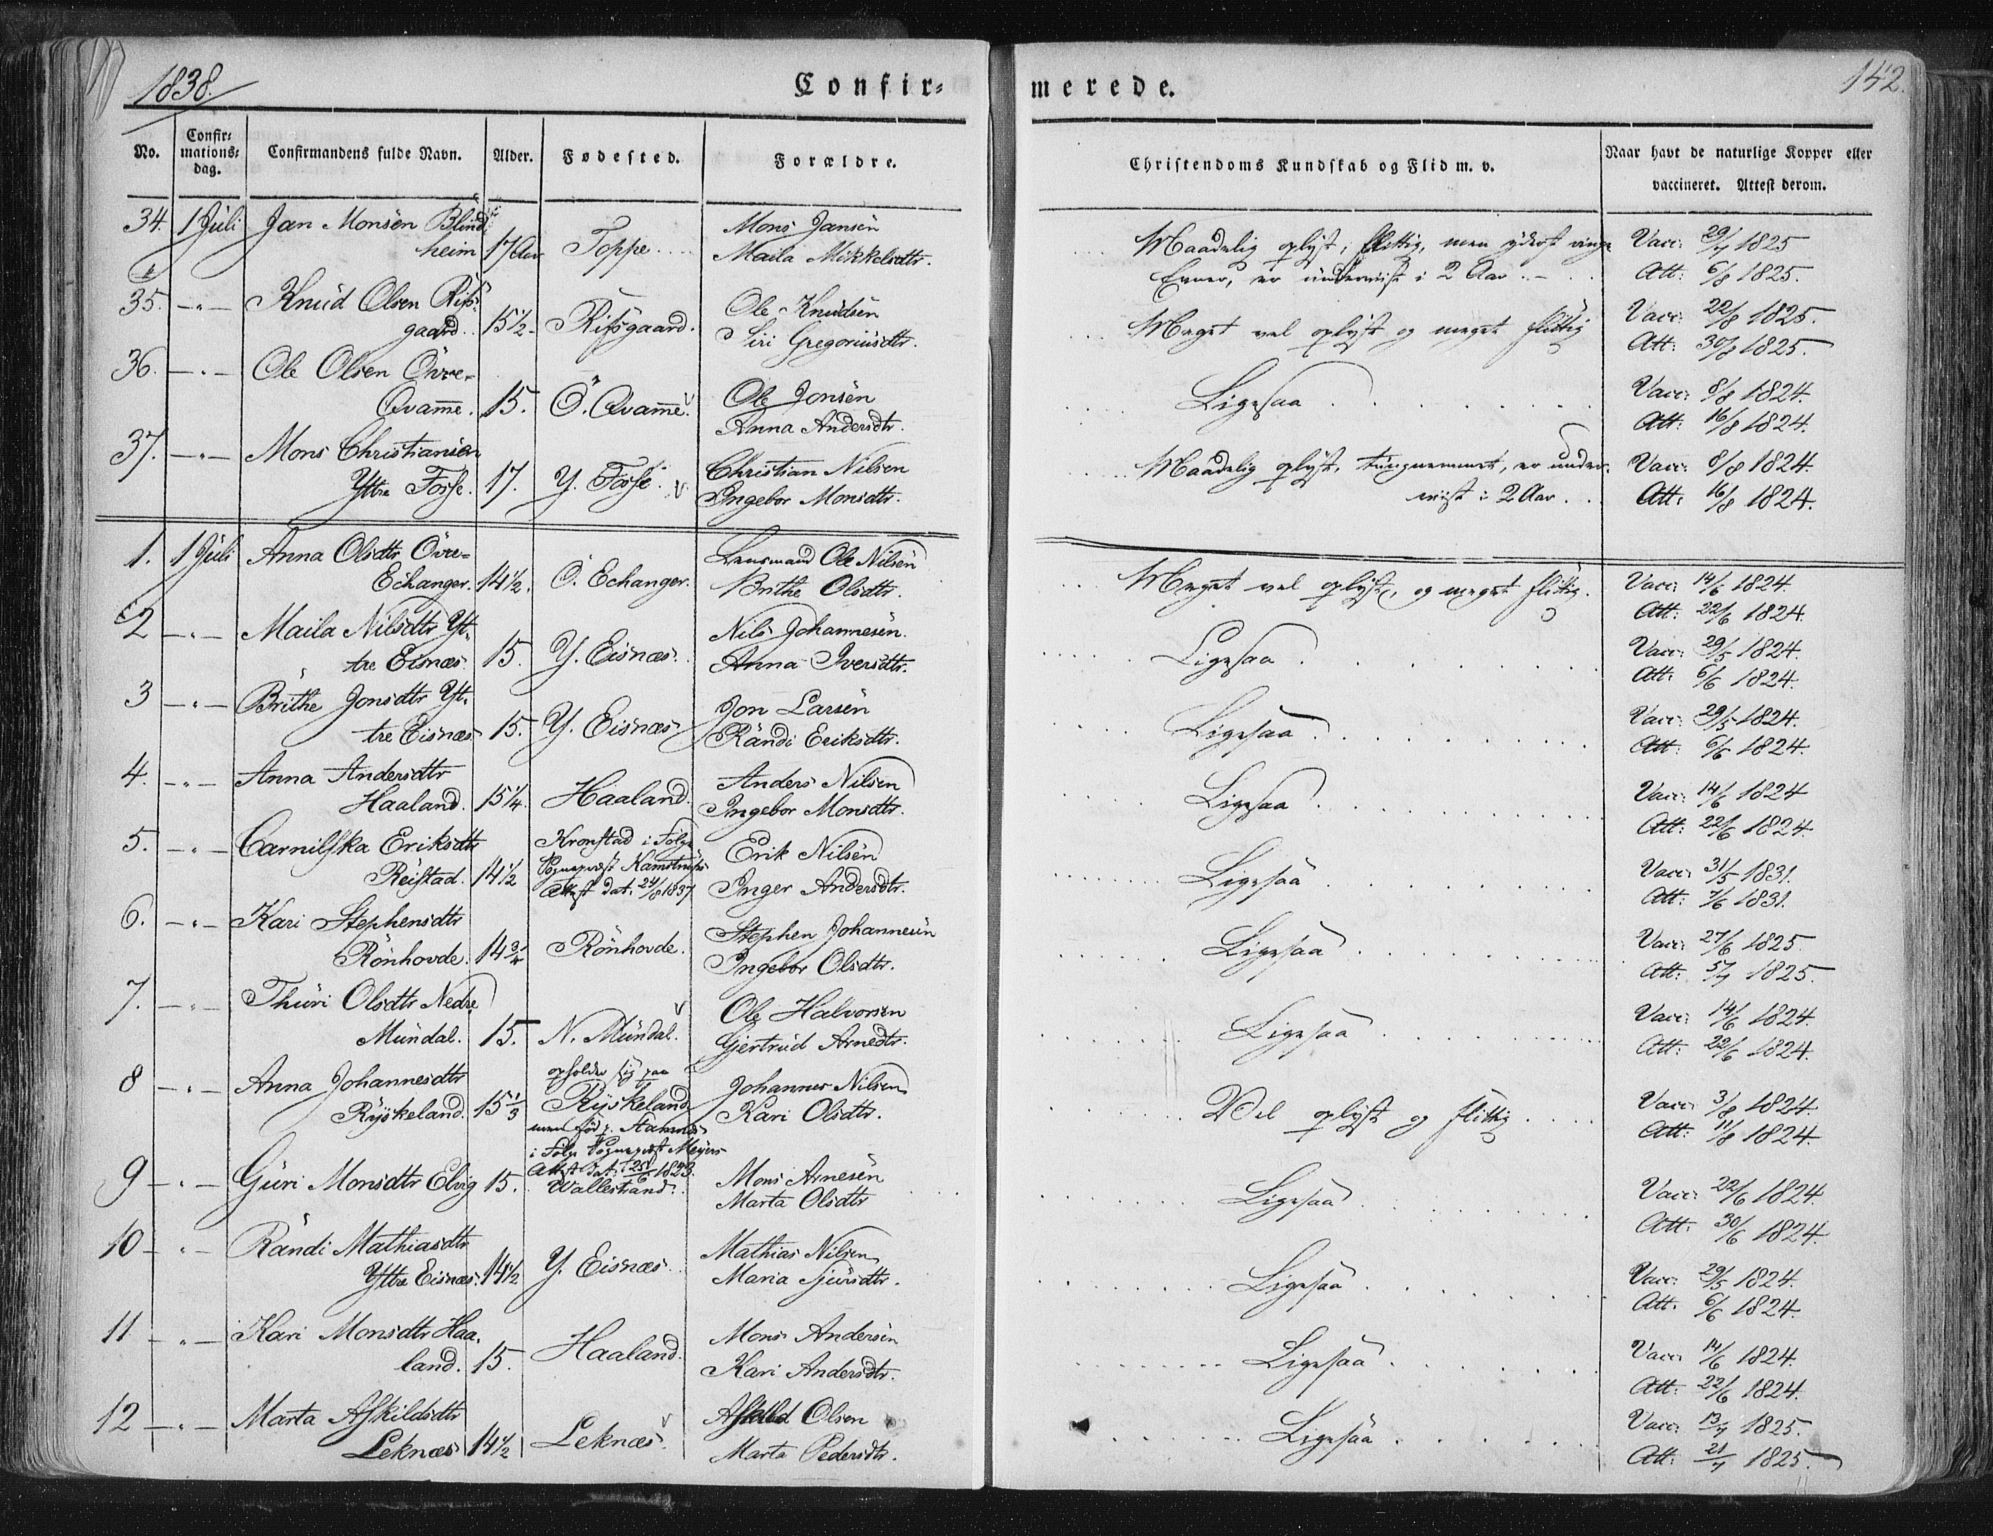 1838.
Confir-
merede.
142.
No.
Confir-
mations-
dag.
Confirmandens fulde Navn.
Alder.
Fødested.
Forældre.
Christendoms Kundskab og Flid m. v.
Naar havt de naturlige Kopper eller
vaccineret. Attest derom.
34. 1 Juli Jan Monsen Blind-
heim 17 Aar Toppe
Mons Jansen
Maila Mikkelsdtr.
Maadelig oplyst, flittig, men yderst ringe
Evner, er underviist i 2 Aar
Vacc: 29/7 1825
Att: 6/8 1825.
35. -"- Knud Olsen Rifs-
gaard. 15 1/2 Rifsgaard.
Ole Knudsen
Siri Gregoriusdtr.
Meget vel oplyst og meget flittig
Vacc: 22/8 1825.
Att: 30/8 1825.
36. -"- Ole Olsen Övre-
Qvam̄e. 15. Ö. Qvam̄e.
Ole Jonsen
Anna Andersdtr.
Ligesaa
Vacc: 8/8 1824.
Att: 16/8 1824.
37. -"- Mons Christiansen
Yttre Fosse. 17. Y. Fosse.
Christian Nilsen
Ingebor Monsdtr.
Maadelig oplyst, tungnemmet, er under-
viist i 2 Aar
Vacc: 8/8 1824.
Att: 16/8 1824.
1. 1 Juli Anna Olsdtr Övre-
Echanger. 14 1/2. Ö. Echanger.
Lensmand Ole Nilsen
Brithe Olsdtr.
Meget vel oplyst, og meget flittig.
Vacc: 14/6 1824.
Att: 22/6 1824.
2 -"- Maila Nilsdtr Yt-
tre Eisnæs. 15. Y. Eisnæs.
Nils Johannesen.
Anna Iversdtr.
Ligesaa
Vacc: 29/5 1824.
Att: 6/6 1824.
3 -"- Brithe Jonsdtr Yt-
tre Eisnæs 15. Y. Eisnæs
Jon Larsen
Rändi Eriksdtr.
Ligesaa
Vacc: 29/5 1824.
Att: 6/6 1824.
4. -"- Anna Andersdtr
Haaland. 15 1/4. Haaland.
Anders Nilsen
Ingebor Monsdtr.
Ligesaa
Vacc: 14/6 1824
Att: 22/6 1824.
5. -"- Carnilska Eriksdtr
Reistad. 14 1/2
Kronstad i Følge
Sognepræst
Attest dat. 24/8 1837.
Erik Nilsen
Inger Andersdtr.
Ligesaa
Vacc: 31/5 1831.
Att: 7/6 1831.
6. -"- Kari Stephensdtr
Rönhovde. 14 3/4 Rönhovde.
Stephen Johannesen
Ingebor Olsdtr.
Ligesaa
Vacc: 27/6 1825.
Att: 5/7 1825.
7. -"- Thuri Olsdtr Nedre
Mundal. 15. N. Mundal.
Ole Halvorsen
Gjertrud Arnedtr.
Ligesaa
Vacc: 14/6 1824.
Att: 22/6 1824.
8 -"- Anna Johannesdtr
Ryskeland. 15 1/3
opholder sig paa
Ryskeland
men fød p. Hammer
i Følge Sognepræst Meyers
Attest dat. 25/6 1823.
Johannes Nilsen
Kari Olsdtr.
Vel oplyst og flittig
Vacc: 3/8 1824.
Att: 11/8 1824.
9 -"- Guri Monsdtr Elvig 15. Vallestrand.
Mons Arnesen
Marta Olsdtr
Ligesaa
Vacc: 22/6 1824
Att: 30/6 1824.
10 -"- Rändi Mathiasdtr
Yttre Eisnæs. 14 1/2 Y. Eisnæs
Mathias Nilsen
Maria Sjursdtr.
Ligesaa
Vacc: 29/5 1824.
Att. 6/6 1824.
11 -"- Kari Monsdtr Haa-
land. 15. Haaland.
Mons Andersen
Kari Andersdtr.
Ligesaa
Vacc: 14/6 1824.
Att: 22/6 1824.
12 -"- Marta Askildsdtr
Leknæs 14 1/2 Leknæs.
Askild Olsen
Marta Pedersdtr.
Ligesaa
Vacc: 13/7 1825.
Att: 21/7 1825.